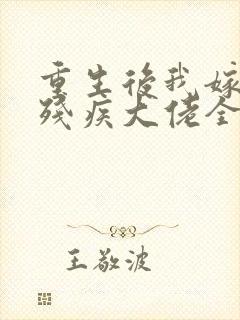 重生後我嫁
殘疾大佬全
王敬波